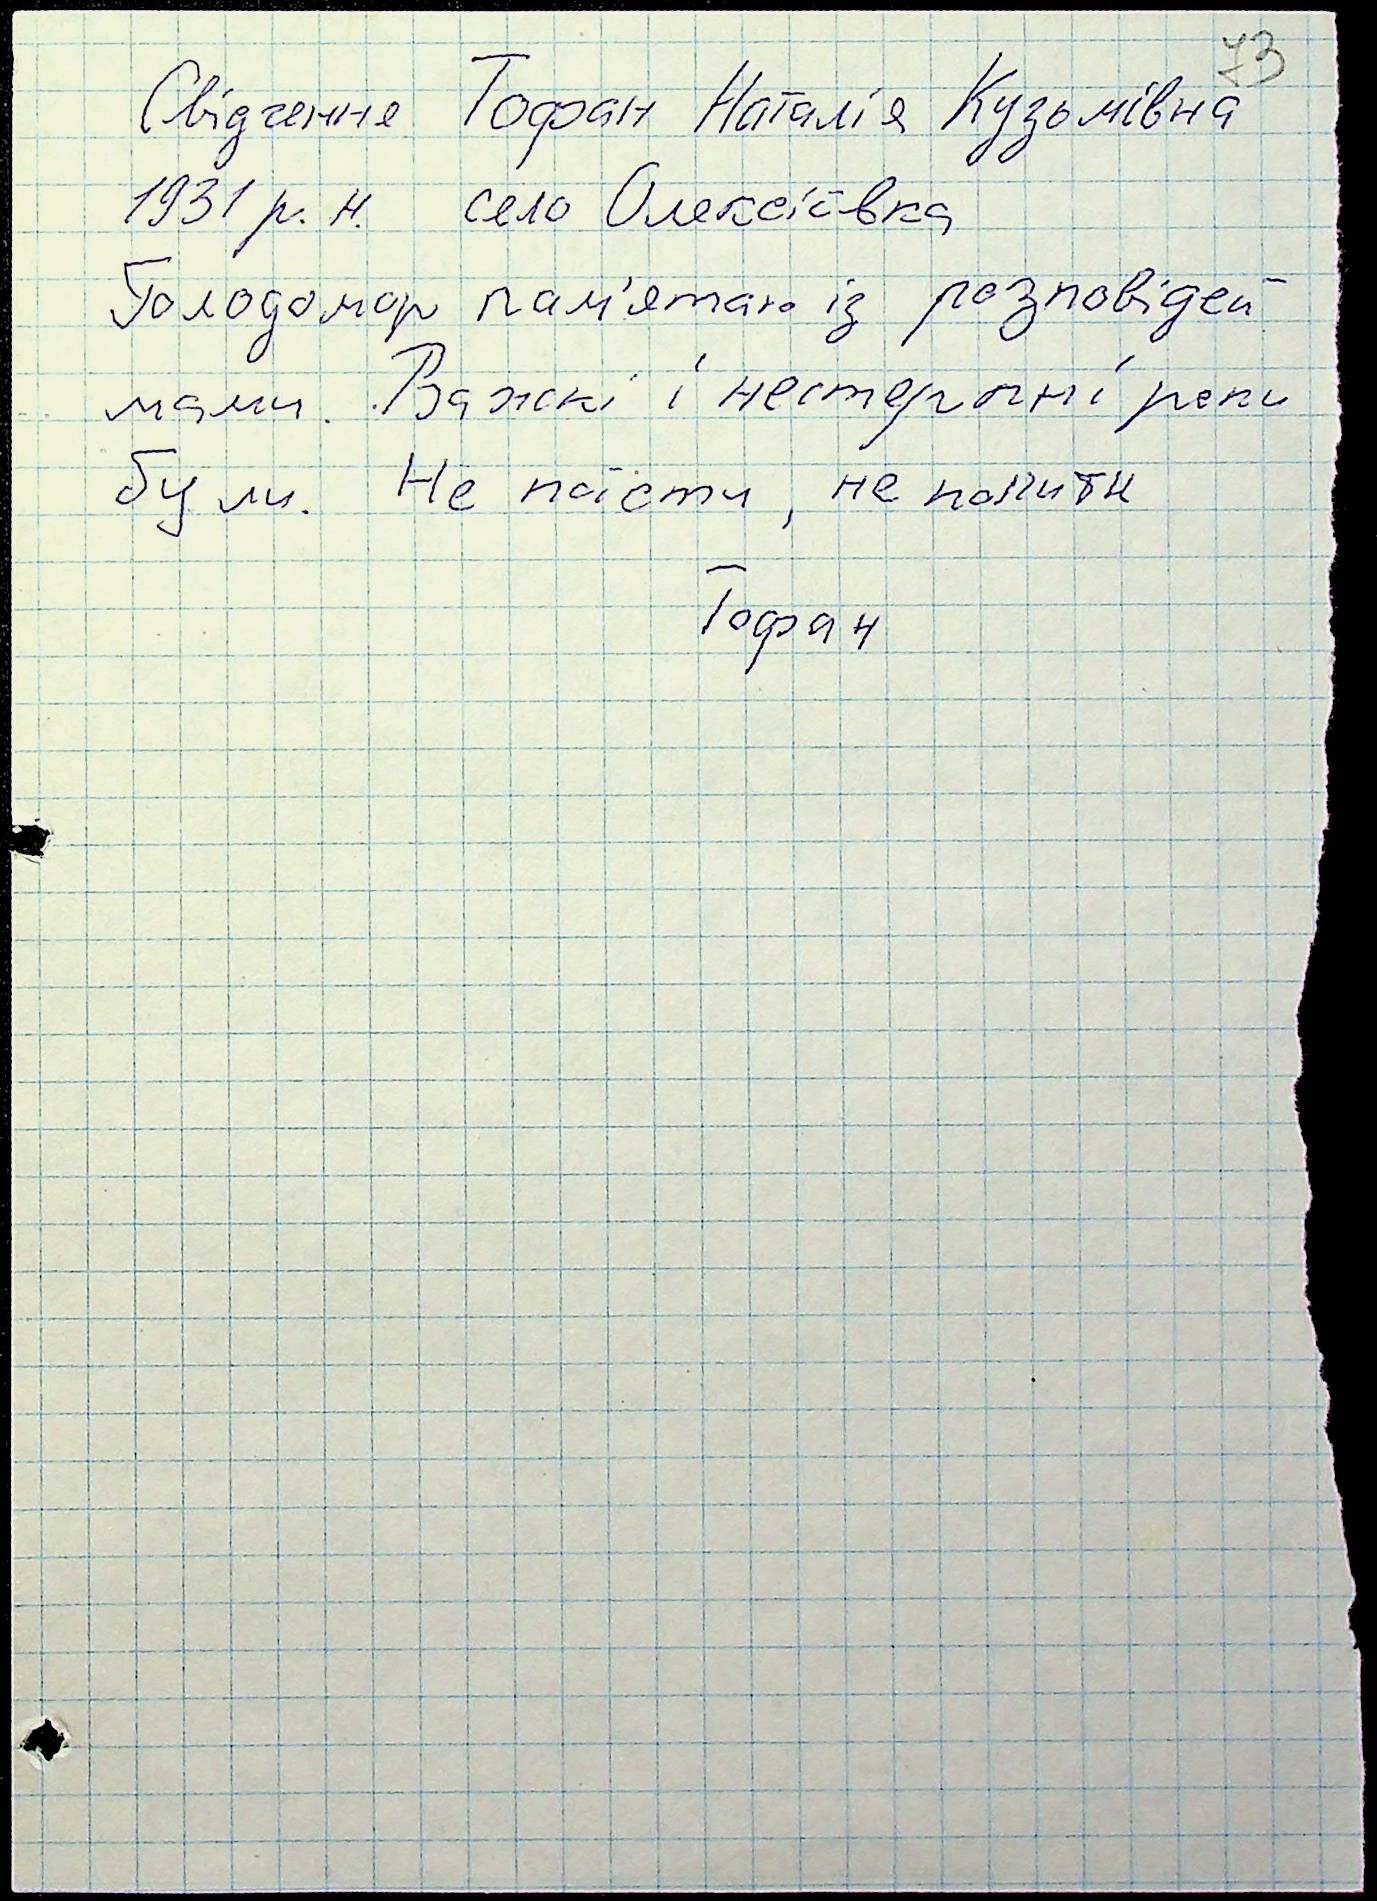 73
Свідчення Тофан Наталія Кузьмівна
1931 р. н. село Олексіївка
Голодомор пам'ятаю із розповідей
мами. Важкі і нестерпні роки
були. Не поїсти, не попити
Тофан